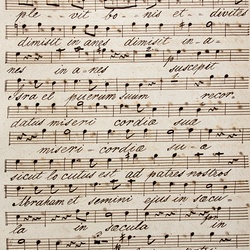 ple - vit bo - nis et divites
dimisit inanes dimisit in - a -
nes in a - nes suscepit
Israel puerum suum recor
datus miseri cordiæ suæ
miseri - cordiæ su - æ
sicut locutus est ad patres nostros
Abraham et semini ejus in sæcu -
la in sæcula